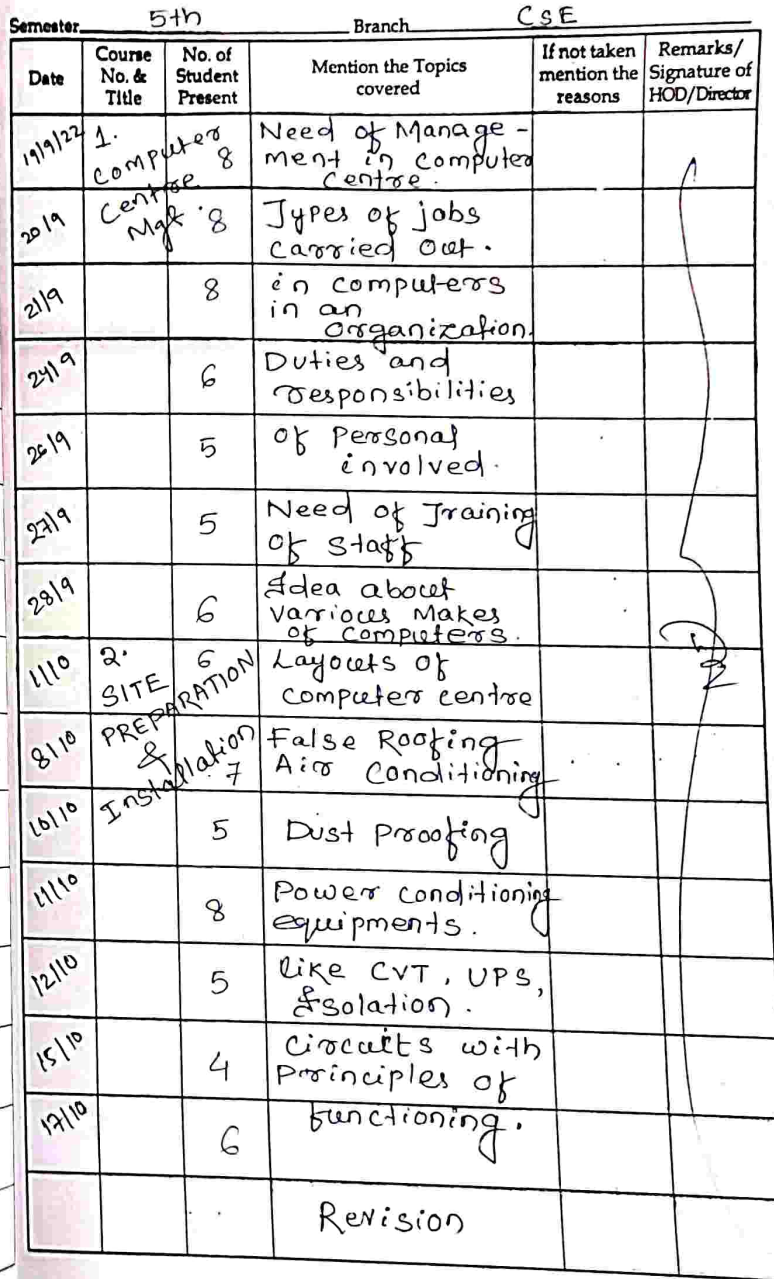 Semester 5th Branch CSE
Date Course No. & Title No. of Student Present Mention the Topics covered If not taken mention the reasons Remarks/ Signature of HOD/Director
19/9/22 1. Computer Centre Mgt. 8 Need of Manage-
ment in computer
Centre.
20/9 8 Types of jobs
carried out.
21/9 8 in computers
in an
organization.
24/9 6 Duties and
responsibilities
26/9 5 of Personal
involved.
27/9 5 Need of Training
of Staff
28/9 6 Idea about
various Makes
of computers.
1/10 2. SITE PREPARATION & Installation 6 Layouts of
computer centre
8/10 7 False Roofing
Air Conditioning
10/10 5 Dust proofing
11/10 8 Power conditioning
equipments.
12/10 5 like CVT, UPS,
Isolation.
15/10 4 Circuits with
Principles of
17/10 6 functioning.
Revision